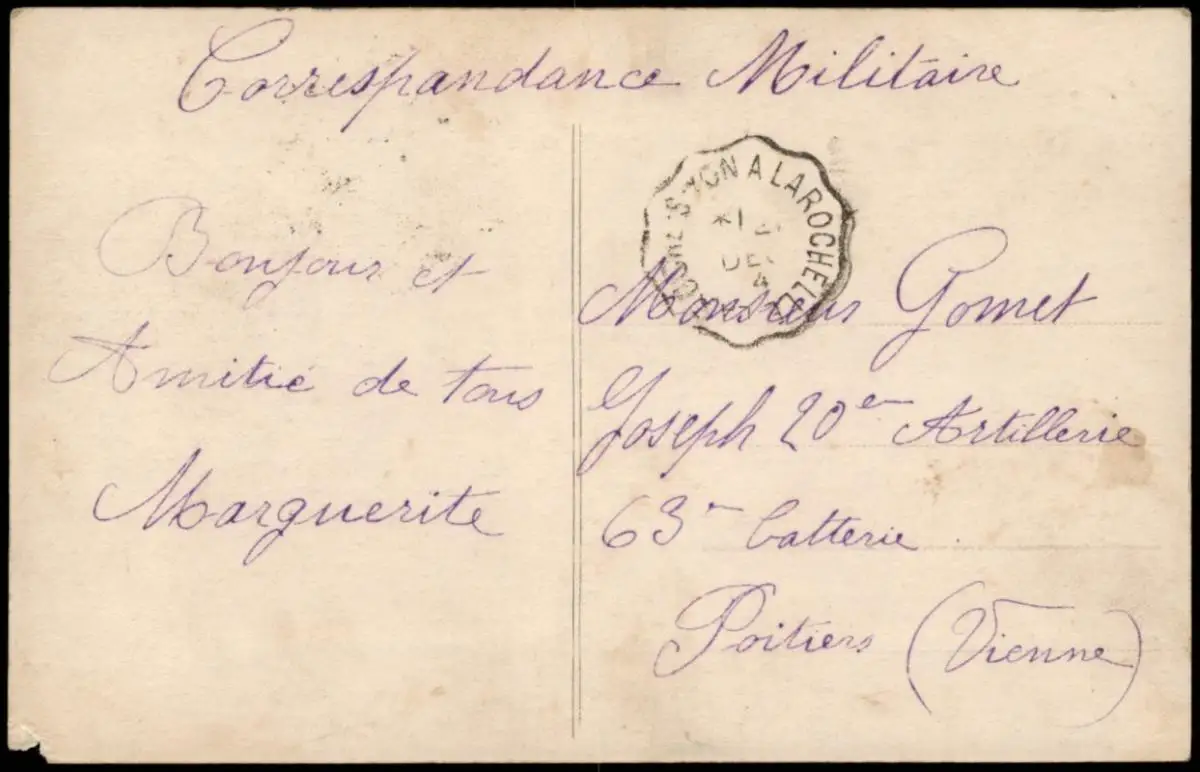 Correspandance Militaire
Bonjour et
Amitié de tous
Marguerite
S YON A LAROCHELLE
4
Monsieur Gomet
Joseph 20em Artillerie
63m batterie
Poitiers (Vienne)